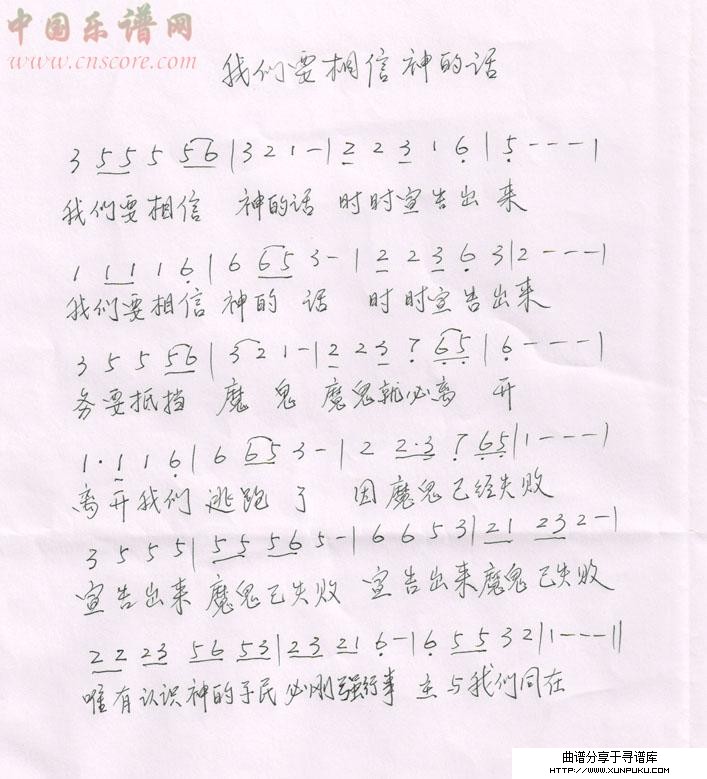 中国乐谱网
www.cnscore.com
我们要相信神的话
3 5 5 5 5 6 | 3 2 1 - | 2 2 3 1 6 | 5 - - - |
我们要相信 神的话 时时宣告出来
1 1 1 1 6 | 6 6 5 3 - | 2 2 3 6 3 | 2 - - - |
我们要相信神的 话 时时宣告出来
3 5 5 5 6 | 3 2 1 - | 2 2 3 7 6 5 | 6 - - - |
务要抵挡 魔鬼 魔鬼就必离 开
1 · 1 1 6 | 6 6 5 3 - | 2 2 · 3 7 6 5 | 1 - - - |
离开我们 逃跑了 因魔鬼已经失败
3 5 5 5 | 5 5 5 6 5 - | 6 6 5 3 | 2 1 2 3 2 - |
宣告出来 魔鬼已失败 宣告出来魔鬼已失败
2 2 2 3 5 6 5 3 | 2 3 2 1 6 - | 6 5 5 3 2 | 1 - - - ||
唯有认识神的子民必刚强行事 主与我们同在
曲谱分享于寻谱库
HTTP://WWW.XUNPUKU.COM